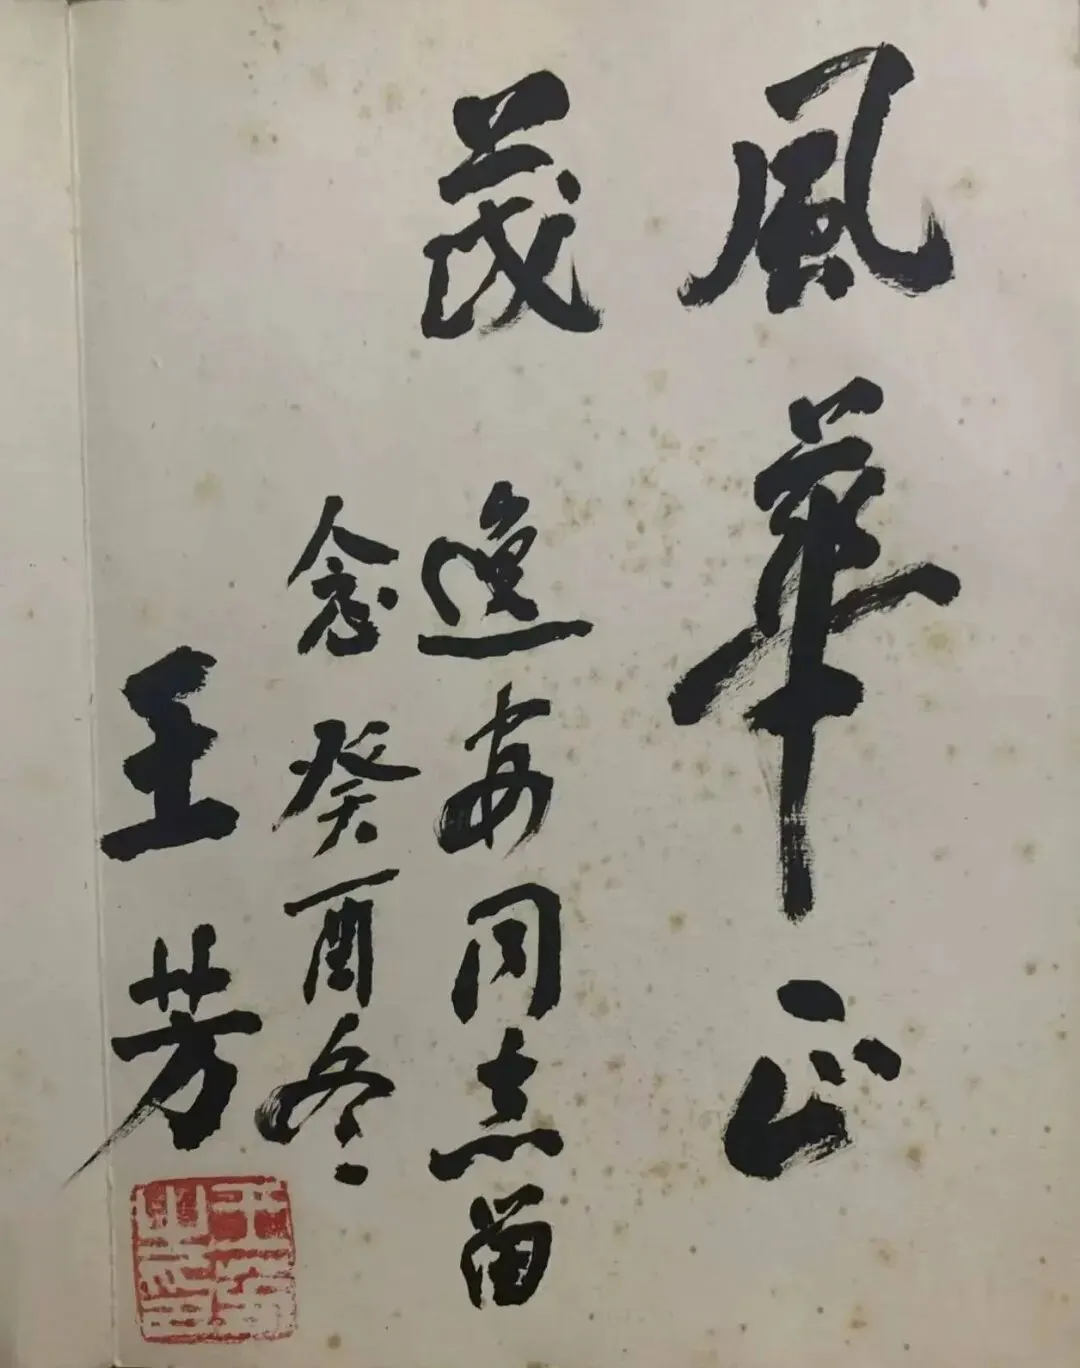 風華正
茂
逸安同志留
念 癸酉冬
王芳
王芳之印